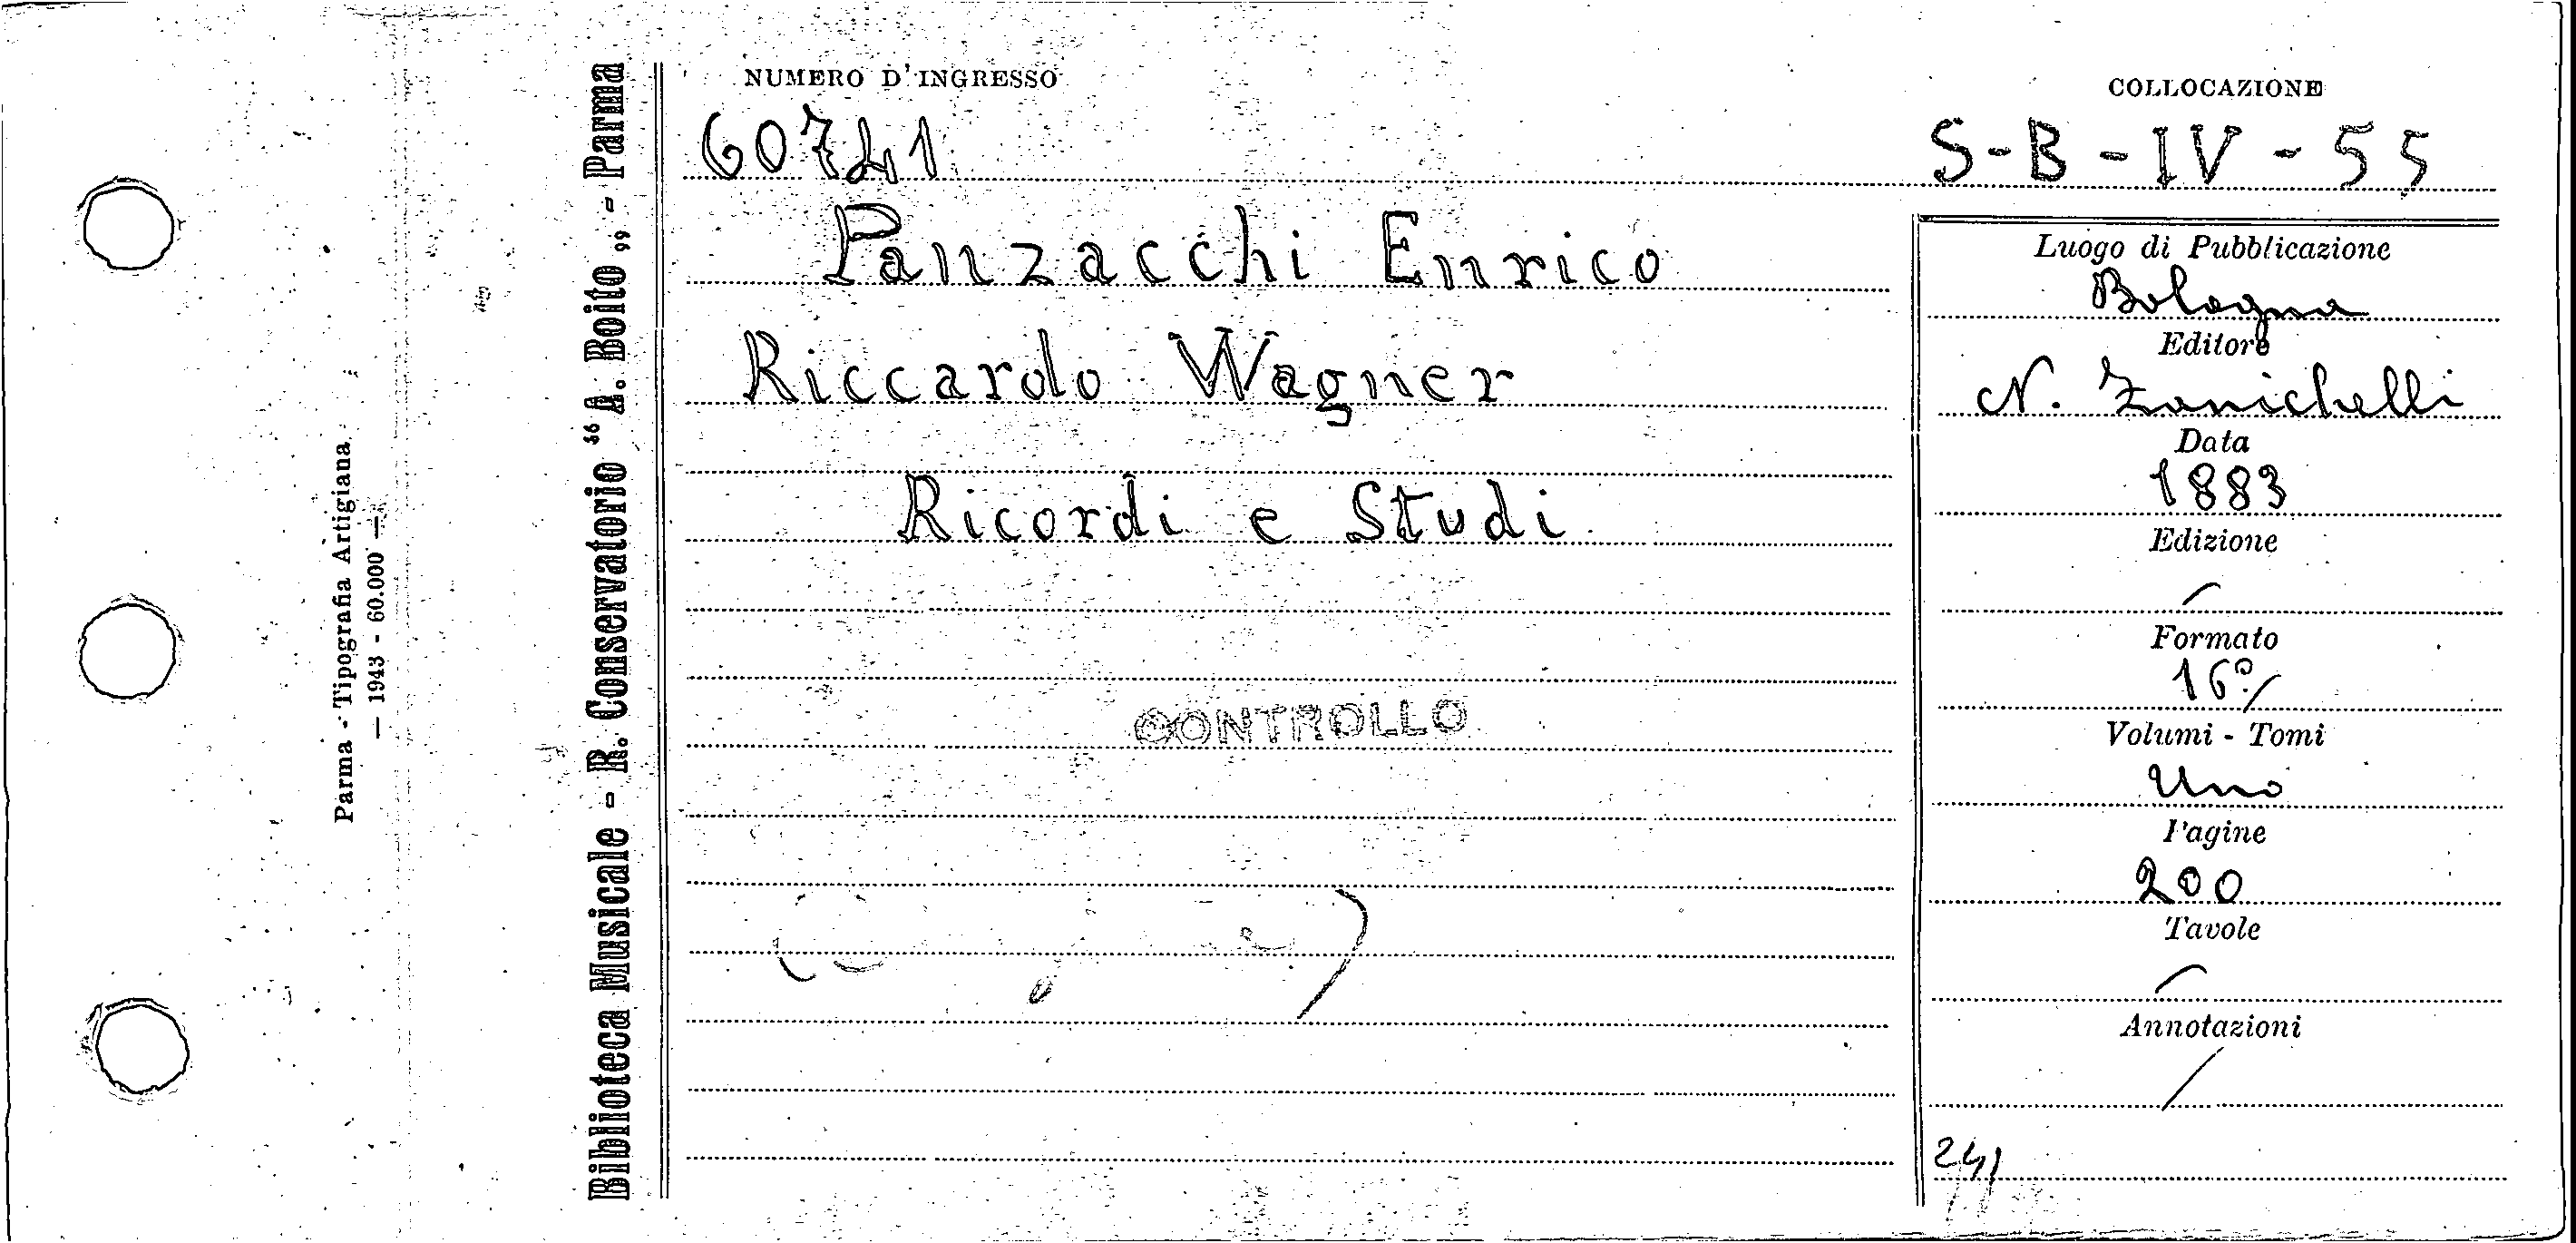 NUMERO D'INGRESSO
60741
COLLOCAZIONE
S-B-IV-55
Panzacchi Enrico
Riccardo Wagner
Ricordi e Studi
CONTROLLO
Luogo di Pubblicazione
Bologna
Editore
N. Zanichelli
Data
1883
Edizione
Formato
16º
Volumi - Tomi
Uno
Pagine
200
Tavole
Annotazioni
241
Biblioteca Musicale - R. Conservatorio "A. Boito" - Parma
Parma - Tipografia Artigiana
— 1943 - 60.000 —